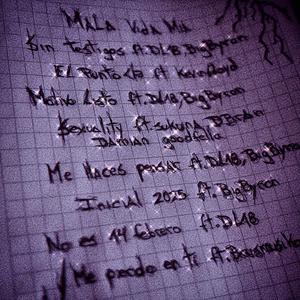 MALA Vida Mia
$in testigos ft. DL18, BigByron
EL Punto ft KevinRoyd
Motivo Listo ft. DL18, BigByron
$exuality ft. sukura B Brain
DAMIAN goodfella
Me Haces pensar ft. DL18, BigByron
Inicial 2025 ft. BigByron
No es 14 febrero ft. DL18
Me pierdo en ti ft.